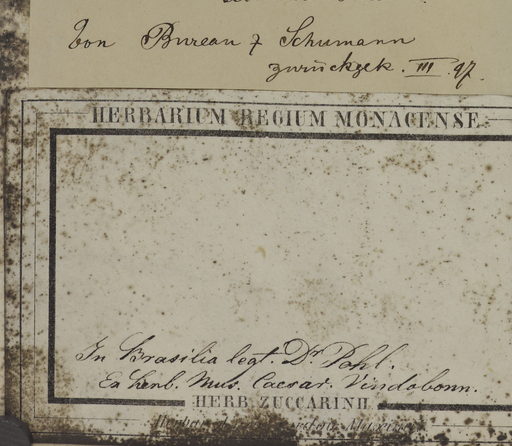 Von Bureau & Schumann
zurückgek. III. 97.
HERBARIUM REGIUM MONACENSE
In Brasilia legt. Dr Pohl.
Ex herb. Mus. Caesar. Vindobonn.
HERB. ZUCCARINII